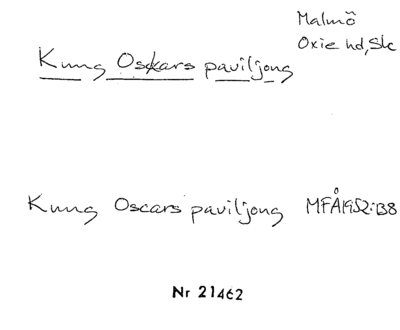 Malmö
Oxie hd, Sk
Kung Oskars paviljong
Kung Oscars paviljong MFÅ 1952:138
Nr 21462